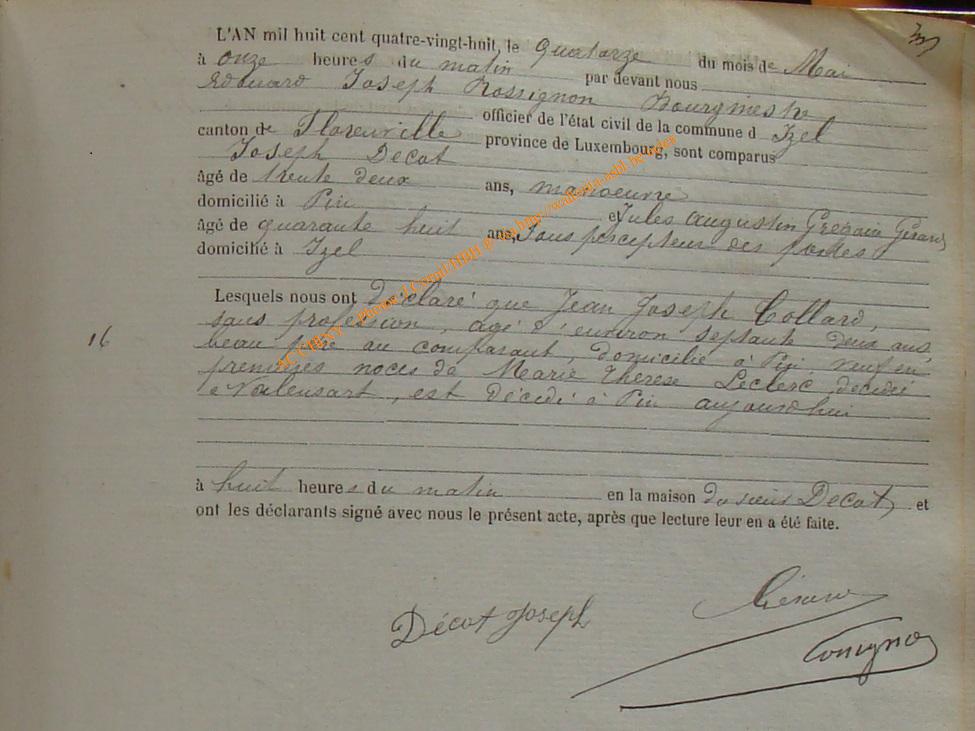 L'AN mil huit cent quatre-vingt-huit, le quatorze du mois de Mai
à onze heures du matin par devant nous
Edouard Joseph Rossignon Bourgmestre
officier de l'état civil de la commune d Izel
canton de Florenville province de Luxembourg, sont comparus
Joseph Decot
âgé de trente deux ans, manoeuvre
domicilié à Pin et Jules Augustin Grégoire Gérard
âgé de quarante huit ans, Sous percepteur des postes
domicilié à Izel
Lesquels nous ont déclaré que Jean Joseph Collard,
sans profession, agé d'environ septante deux ans,
16
beau père au comparant, domicilié à Pin, veuf en
premières noces de Marie Thérèse Leclerc décédée
à Valensart, est décédé à Pin aujourd'hui
à huit heures du matin en la maison du sieur Decot, et
ont les déclarants signé avec nous le présent acte, après que lecture leur en a été faite.
Décot Joseph
Gérard